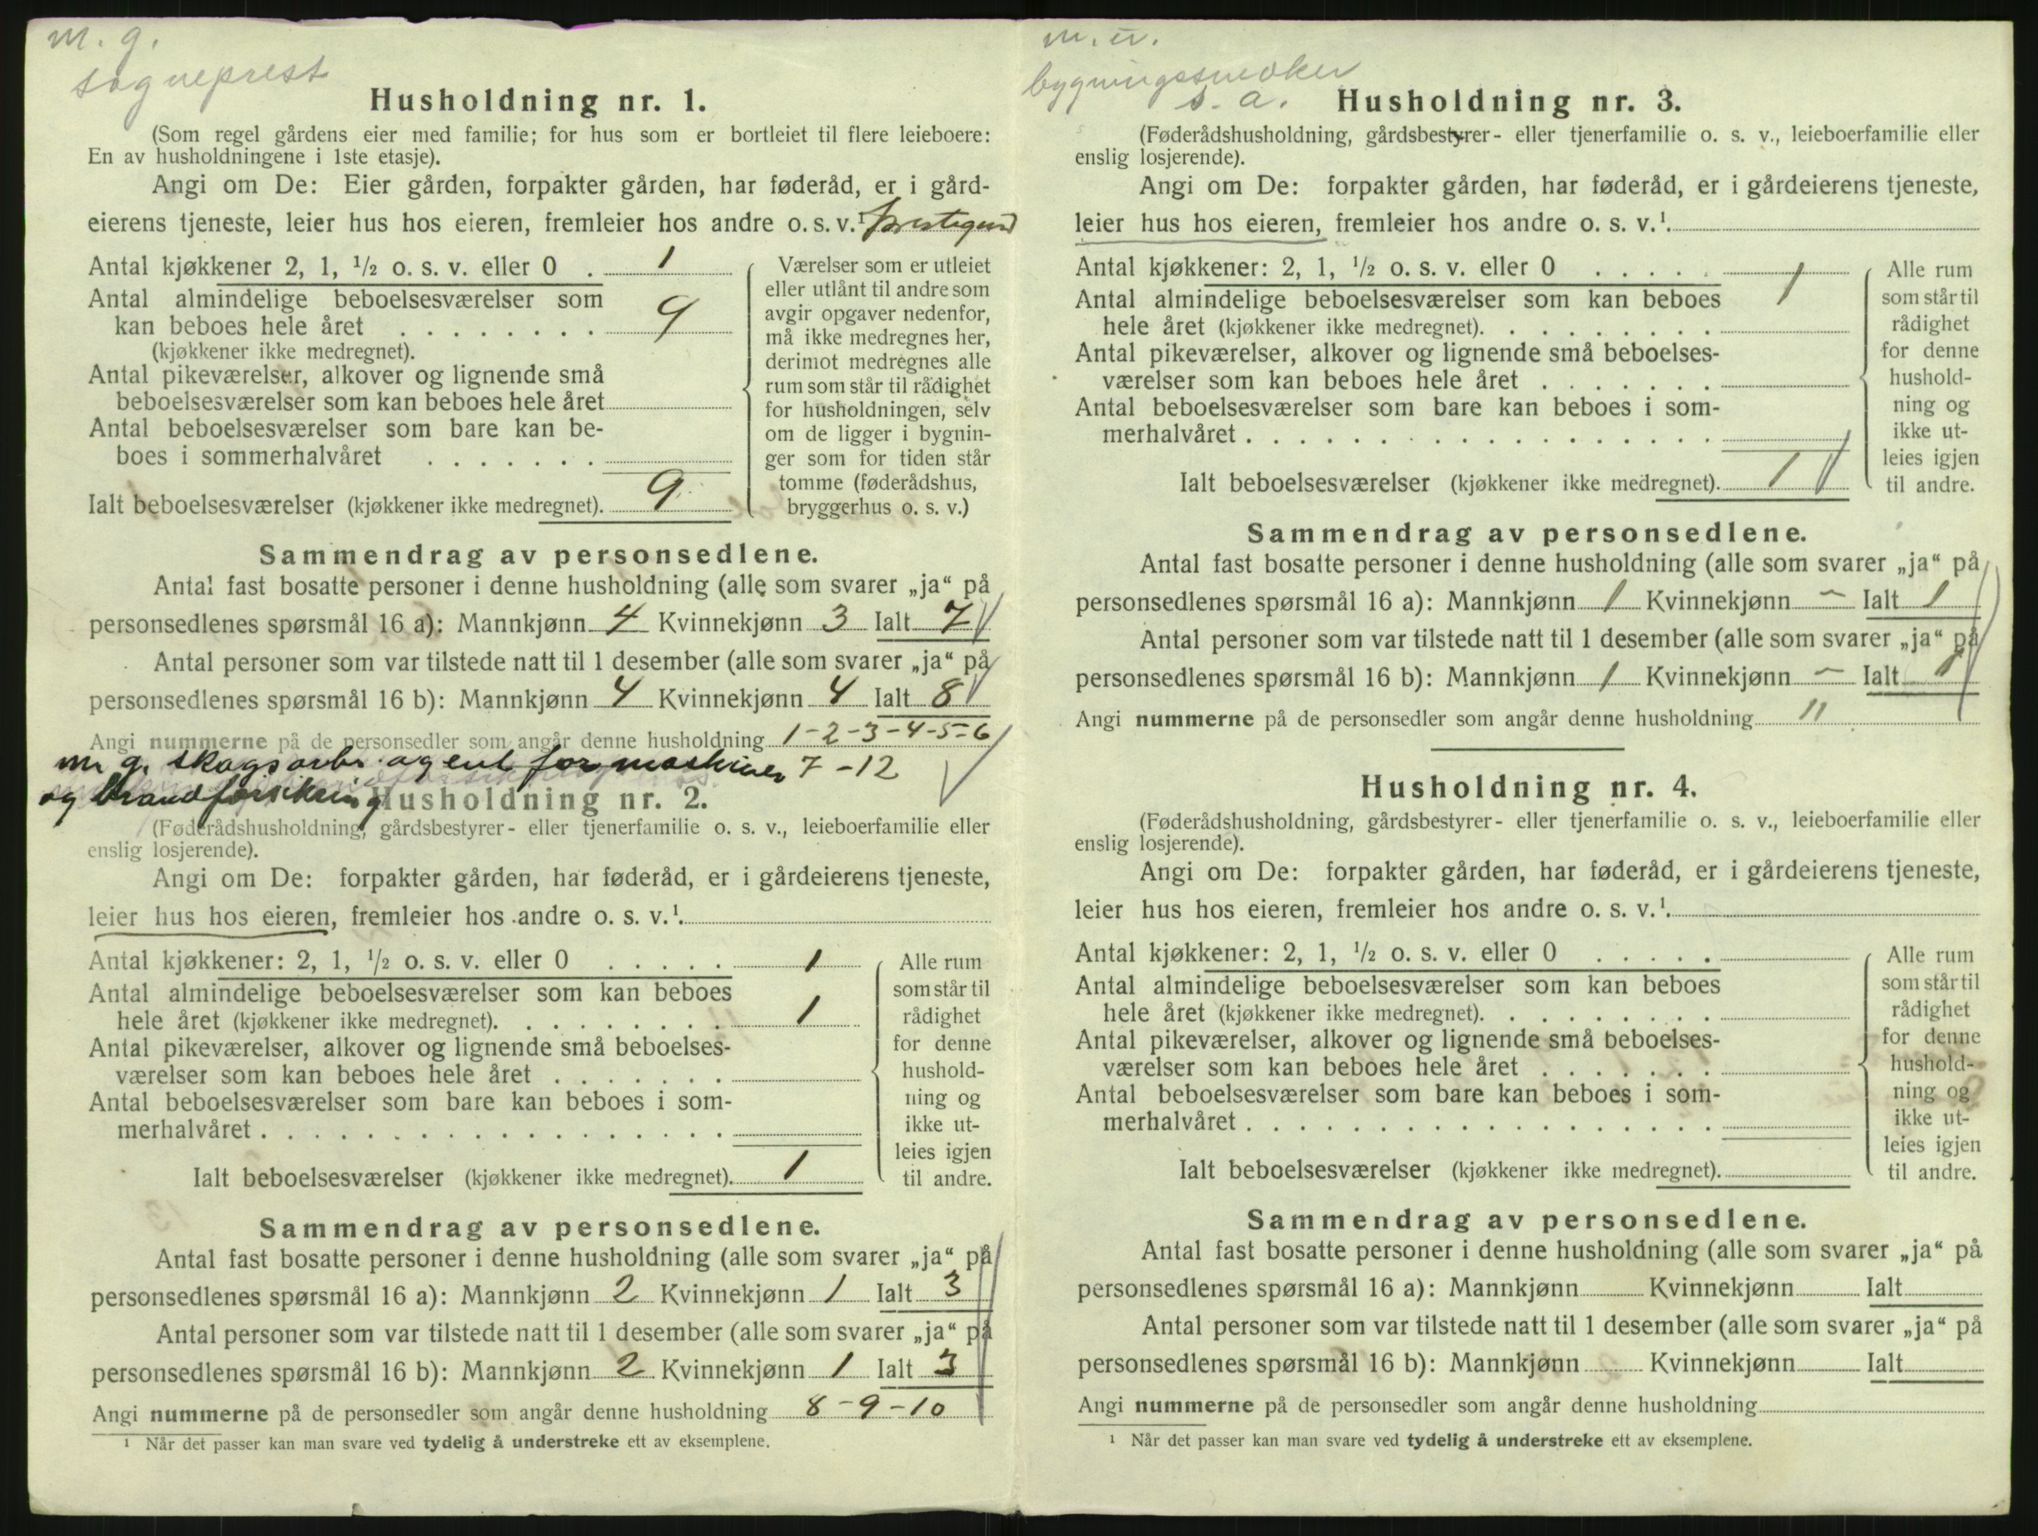 m. g.
sogneprest
Husholdning nr. 1.
(Som regel gårdens eier med familie; for hus som er bortleiet til flere leieboere:
En av husholdningene i 1ste etasje).
Angi om De: Eier gården, forpakter gården, har føderåd, er i gård-
eierens tjeneste, leier hus hos eieren, fremleier hos andre o. s. v.¹
Antal kjøkkener 2, 1, ½ o. s. v. eller 0 . 1
Antal almindelige beboelsesværelser som
kan beboes hele året . . . . . . . . 9
(kjøkkener ikke medregnet).
Antal pikeværelser, alkover og lignende små
beboelsesværelser som kan beboes hele året
Antal beboelsesværelser som bare kan be-
boes i sommerhalvåret . . . . . . .
Ialt beboelsesværelser (kjøkkener ikke medregnet). 9
Værelser som er utleiet
eller utlånt til andre som
avgir opgaver nedenfor,
må ikke medregnes her,
derimot medregnes alle
rum som står til rådighet
for husholdningen, selv
om de ligger i bygnin-
ger som for tiden står
tomme (føderådshus,
bryggerhus o. s. v.)
Sammendrag av personsedlene.
Antal fast bosatte personer i denne husholdning (alle som svarer „ja“ på
personsedlenes spørsmål 16 a): Mannkjønn 4 Kvinnekjønn 3 Ialt 7
Antal personer som var tilstede natt til 1 desember (alle som svarer „ja“ på
personsedlenes spørsmål 16 b): Mannkjønn 4 Kvinnekjønn 4 Ialt 8
Angi nummerne på de personsedler som angår denne husholdning 1-2-3-4-5-6
m. g. skogsarb. agent for maskiner 7-12
og brandforsikring
Husholdning nr. 2.
(Føderådshusholdning, gårdsbestyrer- eller tjenerfamilie o. s. v., leieboerfamilie eller
enslig losjerende).
Angi om De: forpakter gården, har føderåd, er i gårdeierens tjeneste,
leier hus hos eieren, fremleier hos andre o. s. v.¹
Antal kjøkkener: 2, 1, ½ o. s. v. eller 0 . . . . . 1
Antal almindelige beboelsesværelser som kan beboes
hele året (kjøkkener ikke medregnet). . . . . . . . . 1
Antal pikeværelser, alkover og lignende små beboelses-
værelser som kan beboes hele året . . . . . . .
Antal beboelsesværelser som bare kan beboes i som-
merhalvåret . . . . . . . . . . . . . . . . . .
Ialt beboelsesværelser (kjøkkener ikke medregnet). 1
Alle rum
som står til
rådighet
for denne
hushold-
ning og
ikke ut-
leies igjen
til andre.
Sammendrag av personsedlene.
Antal fast bosatte personer i denne husholdning (alle som svarer „ja“ på
personsedlenes spørsmål 16 a): Mannkjønn 2 Kvinnekjønn 1 Ialt 3
Antal personer som var tilstede natt til 1 desember (alle som svarer „ja“ på
personsedlenes spørsmål 16 b): Mannkjønn 2 Kvinnekjønn 1 Ialt 3
Angi nummerne på de personsedler som angår denne husholdning 8-9-10
¹ Når det passer kan man svare ved tydelig å understreke ett av eksemplene.
m. u.
bygningssnedker
s. a.
Husholdning nr. 3.
(Føderådshusholdning, gårdsbestyrer- eller tjenerfamilie o. s. v., leieboerfamilie eller
enslig losjerende).
Angi om De: forpakter gården, har føderåd, er i gårdeierens tjeneste,
leier hus hos eieren, fremleier hos andre o. s. v.¹
Antal kjøkkener: 2, 1, ½ o. s. v. eller 0 . . . . .
Antal almindelige beboelsesværelser som kan beboes 1
hele året (kjøkkener ikke medregnet). . . . . . . . .
Antal pikeværelser, alkover og lignende små beboelses-
værelser som kan beboes hele året . . . . . . .
Antal beboelsesværelser som bare kan beboes i som-
merhalvåret . . . . . . . . . . . . . . . . . .
Ialt beboelsesværelser (kjøkkener ikke medregnet). 1
Alle rum
som står til
rådighet
for denne
hushold-
ning og
ikke ut-
leies igjen
til andre.
Sammendrag av personsedlene.
Antal fast bosatte personer i denne husholdning (alle som svarer „ja“ på
personsedlenes spørsmål 16 a): Mannkjønn 1 Kvinnekjønn – Ialt 1
Antal personer som var tilstede natt til 1 desember (alle som svarer „ja“ på
personsedlenes spørsmål 16 b): Mannkjønn 1 Kvinnekjønn – Ialt 1
Angi nummerne på de personsedler som angår denne husholdning 11
Husholdning nr. 4.
(Føderådshusholdning, gårdsbestyrer- eller tjenerfamilie o. s. v., leieboerfamilie eller
enslig losjerende).
Angi om De: forpakter gården, har føderåd, er i gårdeierens tjeneste,
leier hus hos eieren, fremleier hos andre o. s. v.¹
Antal kjøkkener: 2, 1, ½ o. s. v. eller 0 . . . . .
Antal almindelige beboelsesværelser som kan beboes
hele året (kjøkkener ikke medregnet). . . . . . . . .
Antal pikeværelser, alkover og lignende små beboelses-
værelser som kan beboes hele året . . . . . . .
Antal beboelsesværelser som bare kan beboes i som-
merhalvåret . . . . . . . . . . . . . . . . . .
Ialt beboelsesværelser (kjøkkener ikke medregnet).
Alle rum
som står til
rådighet
for denne
hushold-
ning og
ikke ut-
leies igjen
til andre.
Sammendrag av personsedlene.
Antal fast bosatte personer i denne husholdning (alle som svarer „ja“ på
personsedlenes spørsmål 16 a): Mannkjønn Kvinnekjønn Ialt
Antal personer som var tilstede natt til 1 desember (alle som svarer „ja“ på
personsedlenes spørsmål 16 b): Mannkjønn Kvinnekjønn Ialt
Angi nummerne på de personsedler som angår denne husholdning
¹ Når det passer kan man svare ved tydelig å understreke ett av eksemplene.